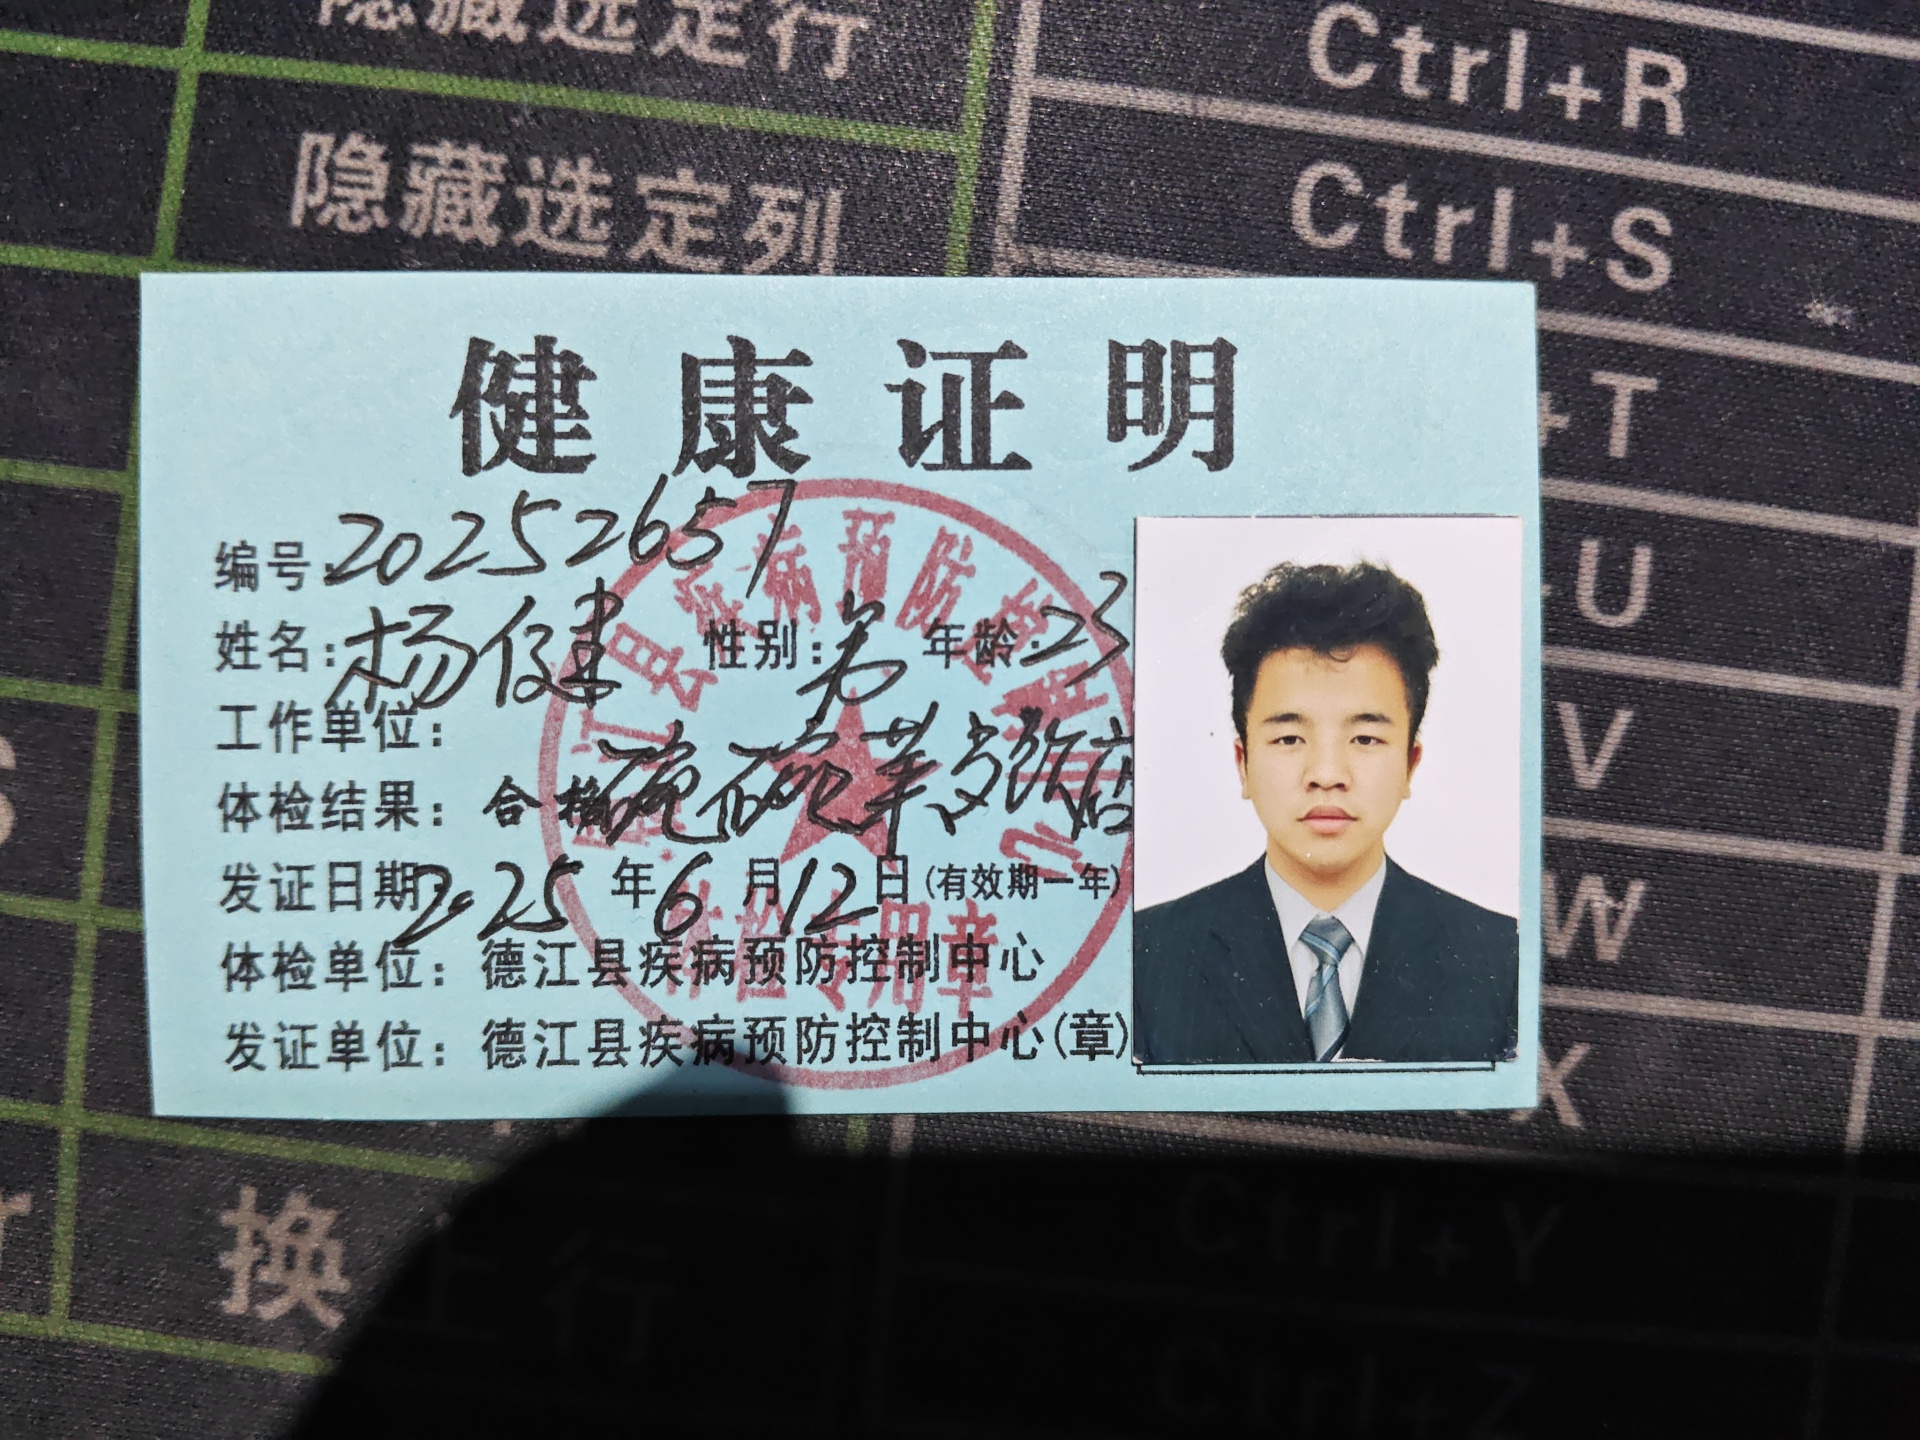 隐藏选定行
Ctrl+R
隐藏选定列
Ctrl+S
+T
U
V
W
X
健康证明
编号:20252657
姓名:杨健 性别:男 年龄:23
工作单位:
体检结果: 合格
发证日期2025年6月12日(有效期一年)
体检单位: 德江县疾病预防控制中心
发证单位: 德江县疾病预防控制中心(章)
德江县疾病预防控制中心
体检专用章
换上行
Ctrl+Y
Ctrl+Z